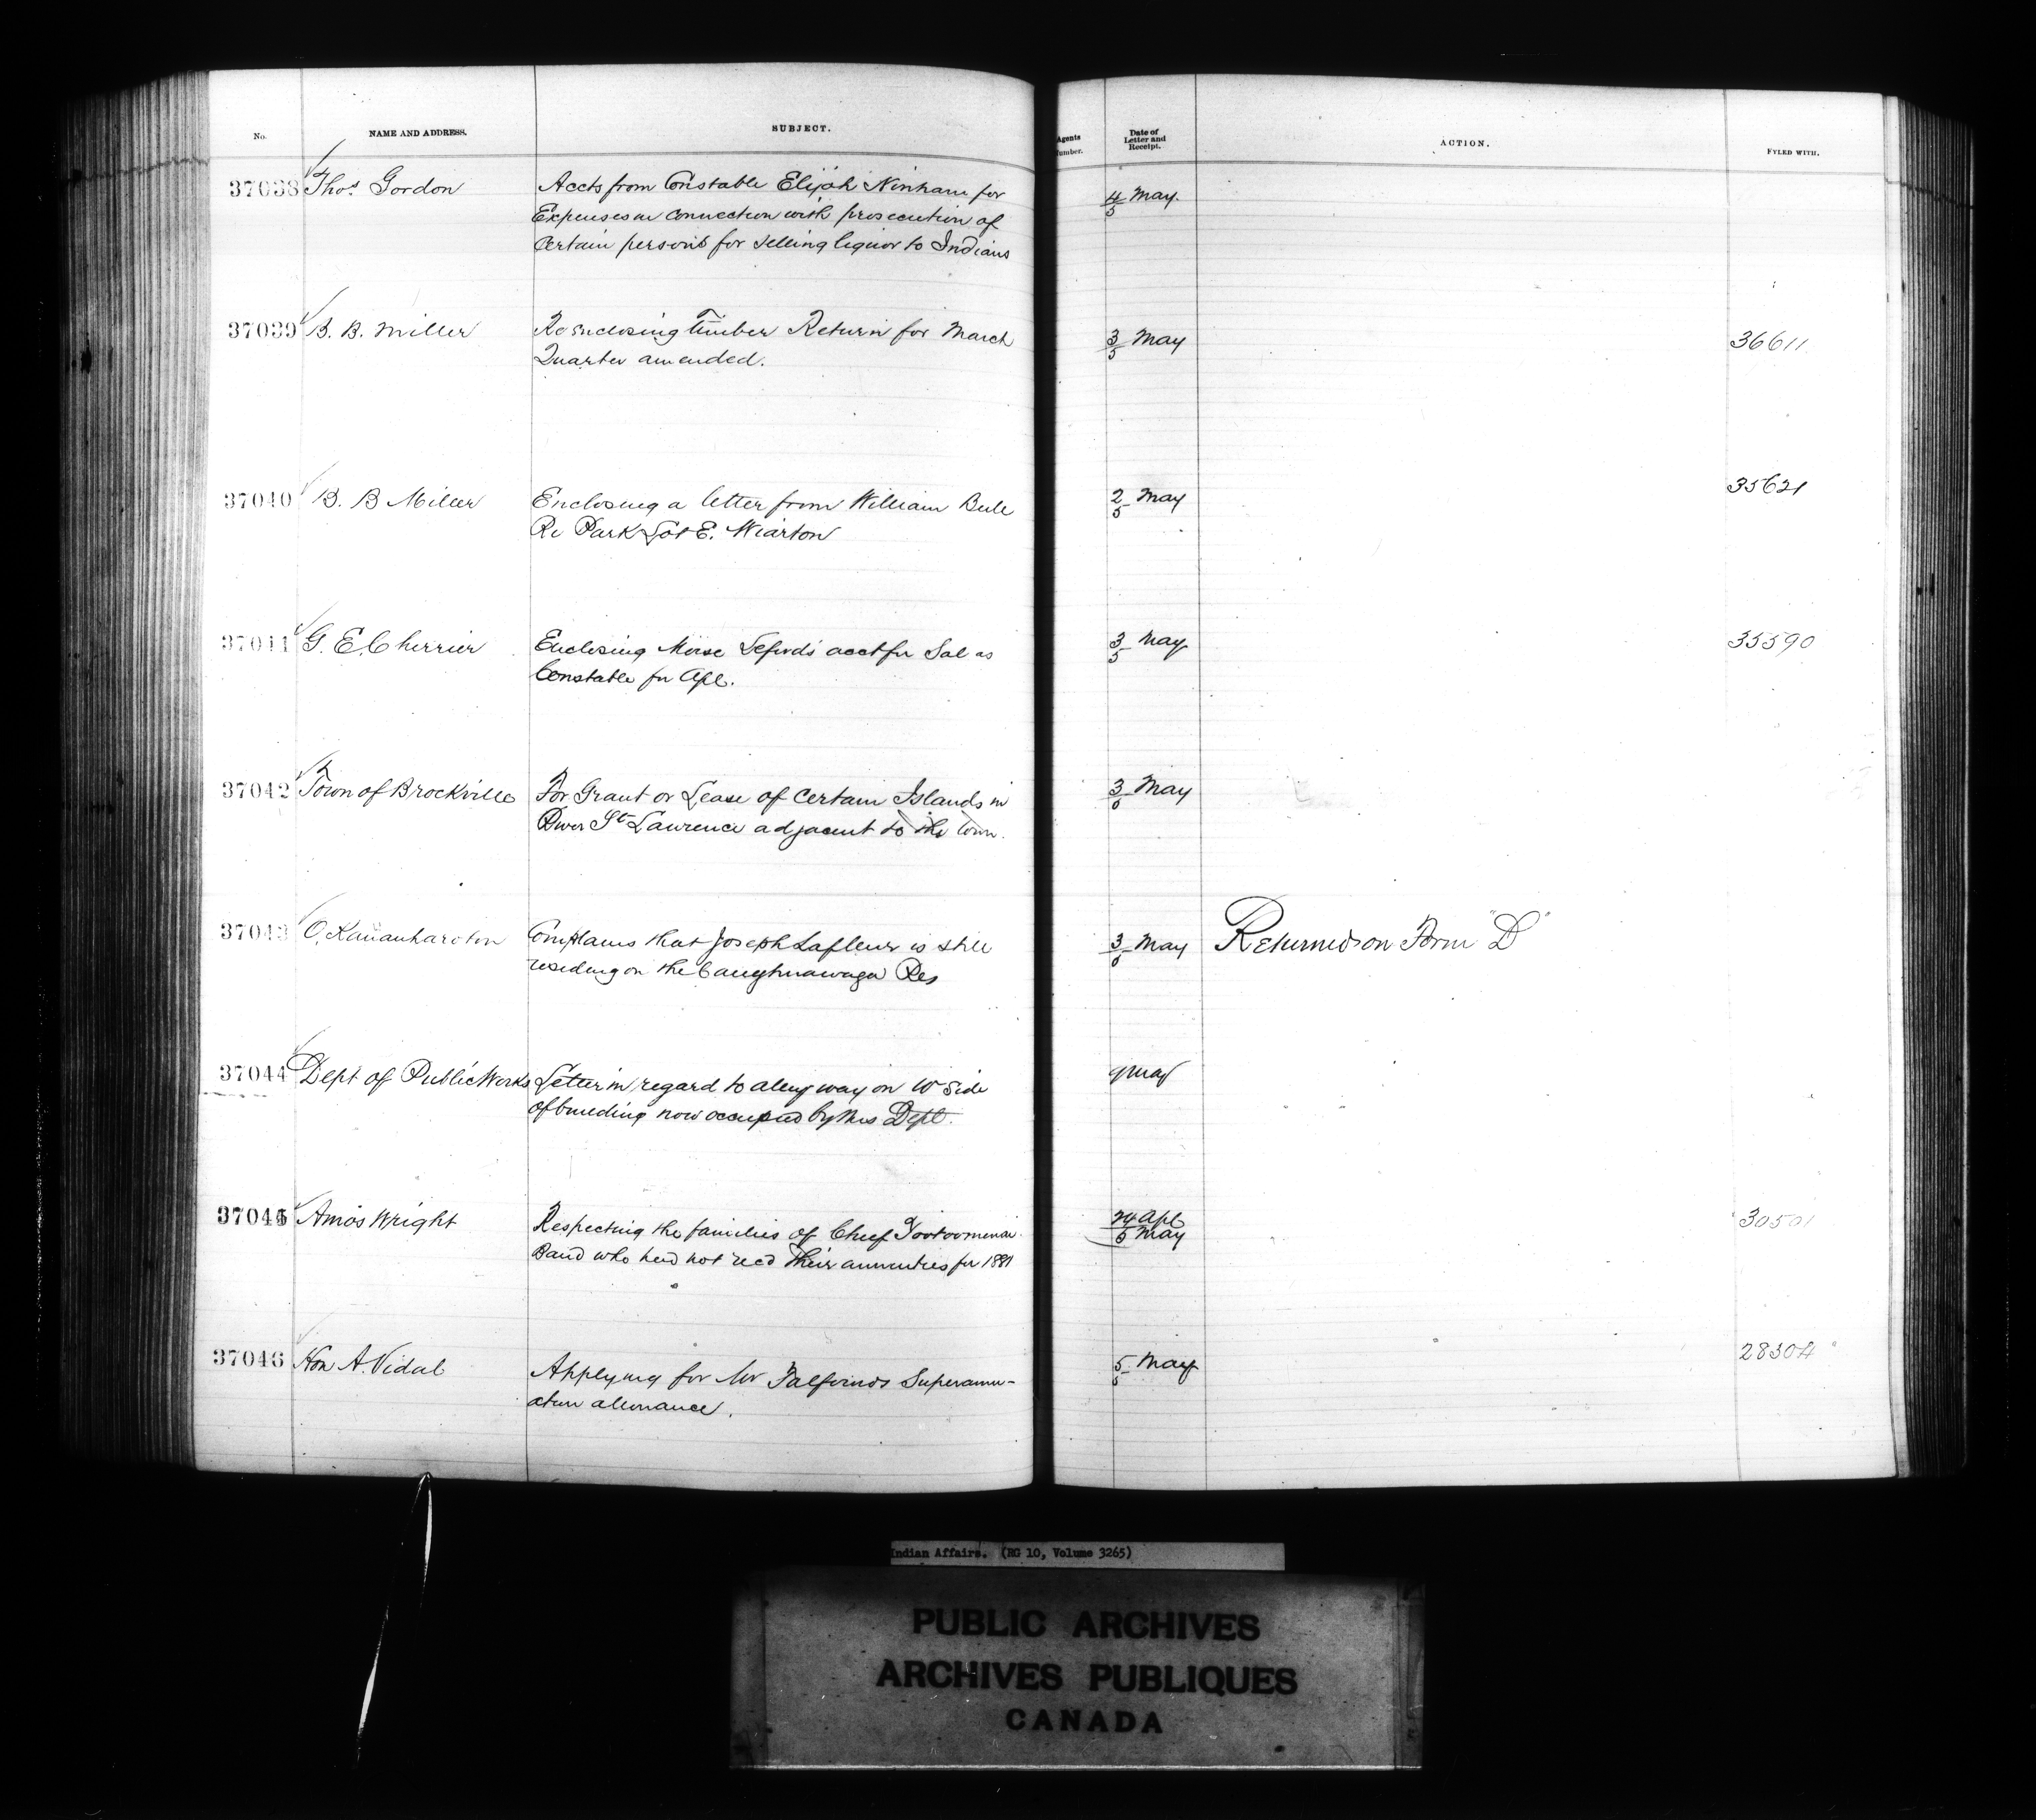 No. NAME AND ADDRESS. SUBJECT. Agents Number. Date of Letter and Receipt. ACTION. FYLED WITH.
37038 Thos. Gordon Accts from Constable Elijah Ninham for 4/5 May.
Expenses in connection with prosecution of
Certain persons for selling liquor to Indians
37039 B. B. Miller Re enclosing Timber Return for March 3/5 May 36611
Quarter amended.
37040 B. B Miller Enclosing a letter from William Bull 2/5 May 35621
Re Park Lot E. Wiarton
37041 G. E. Cherrier Enclosing Moise Leford's acct for Sal as 3/5 May 35590
Constable for Apl.
37042 Town of Brockville For Grant or Lease of Certain Islands in 3/5 May
River St Lawrence adjacent to the town.
37043 Complains that Joseph Lafleur is still 3/5 May Returned on Form "D"
residing on the Caughnawaga Res
37044 Dept of Public Works Letter in regard to alley way on W Side May
of building now occupied by this Dept.
37045 Amos Wright Respecting the families of Chief 24 Apl 30501
Band who had not rec'd their annuities for 1881 5 May
37046 Hon A. Vidal Applying for Mr Superannu- 5/5 May 28304
ation allowance.
Indian Affairs. (RG 10, Volume 3265)
PUBLIC ARCHIVES
ARCHIVES PUBLIQUES
CANADA